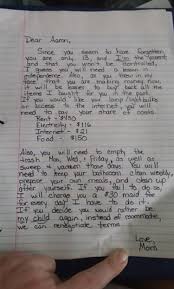 Dear Aaron,
Since you seem to have forgotten
you are only 13, and I'm the parent
and that you won't be controlled,
I guess you will need a lesson in
independence. Also, as you threw in my
face that you are making money now,
it will be easier to buy back all the
items I bought for you in the past.
If you would like your lamp/lightbulbs
or access to the internet, you will
need to pay your share of costs.
Rent - $430
Electricity - $116
Internet - $21
Food - $150
Also, you will need to empty the
trash Mon, Wed, & Friday, as well as
sweep & vacuum those days. You will
need to keep your bathroom clean weekly,
prepare your own meals, and clean up
after yourself. If you fail to do so,
I will charge you a $30 maid fee
for every day I have to do it.
If you decide you would rather be
my child again, instead of roommate,
we can renegotiate terms.
Love,
Mom